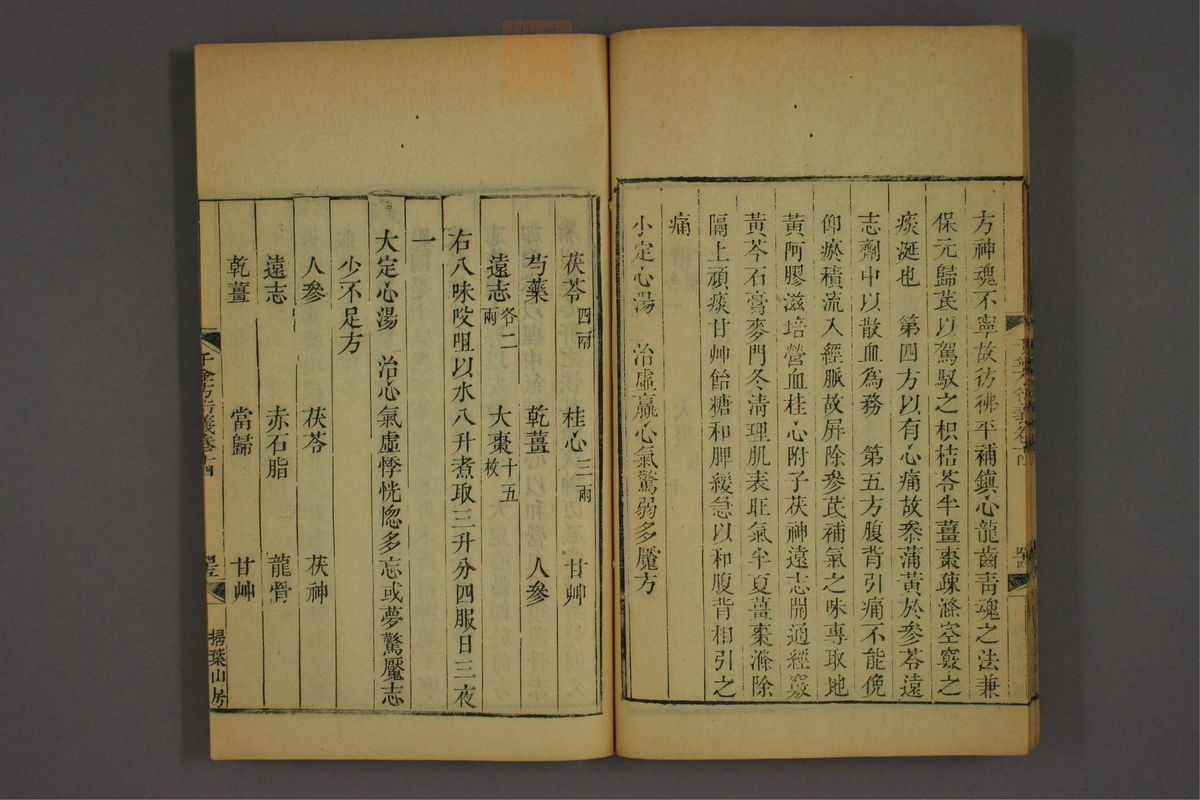 方神魂不寧故彷彿平補鎮心龍齒靑魂之法兼
保元歸芪以駕馭之枳桔苓半薑棗疎滌空竅之
痰涎也　第四方以有心痛故叅蒲黃於參苓遠
志劑中以散血爲務　第五方腹背引痛不能俛
仰瘀積流入經脈故屛除參芪補氣之味專取地
黃阿膠滋培營血桂心附子茯神遠志開通經竅
黃芩石膏麥門冬淸理肌表旺氣半夏薑棗滌除
隔上頑痰甘艸飴糖和脾緩急以和腹背相引之
痛
小定心湯　治虛羸心氣驚弱多魘方
茯苓四兩　桂心三兩　甘艸
芍藥　乾薑　人參
遠志各二兩　大棗十五枚
右八味㕮咀以水八升煮取三升分四服日三夜
一
大定心湯　治心氣虛悸恍惚多忘或夢驚魘志
少不足方
人參　茯苓　茯神
遠志　赤石脂　龍骨
乾薑　當歸　甘艸
千金方衍義卷十四
掃葉山房